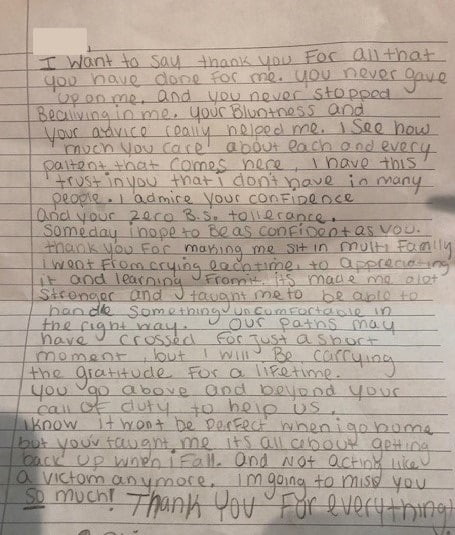 I want to say thank you for all that
you have done for me. you never gave
up on me. and you never stopped
Becaliving in me. your Bluntness and
your advice really helped me. I see how
much you care about each and every
paitent that comes here, I have this
trust in you that i don't have in many
people. I admire your confidence
and your zero B.S. tollerance.
Someday i hope to Be as confident as you.
thank you for making me sit in multi family
I went from crying each time, to appreciating
it and learning from it. its made me alot
stronger and taught me to be able to
handle something uncomfortable in
the right way. Our paths may
have crossed for just a short
moment, but I will Be carrying
the gratitude for a lifetime.
you go above and beyond your
call of duty to help us.
i know it wont be perfect when i go home
but you'v taught me its all about getting
back up when i fall. and Not acting like
a victom anymore. im going to miss you
so much! Thank you for everything!